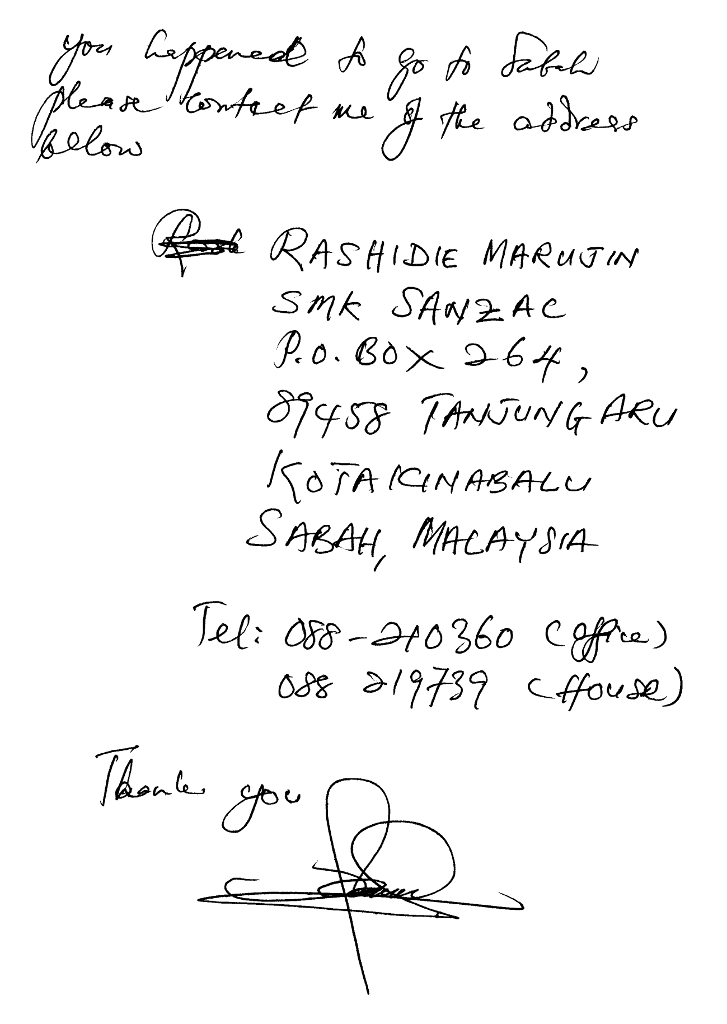 you happened to go to Sabah
please contact me of the address
below
RASHIDIE MARUJIN
SMK SANZAC
P.O. BOX 264,
89458 TANJUNG ARU
KOTA KINABALU
SABAH, MALAYSIA
Tel: 088-210360 (Office)
088 219739 (House)
Thank you